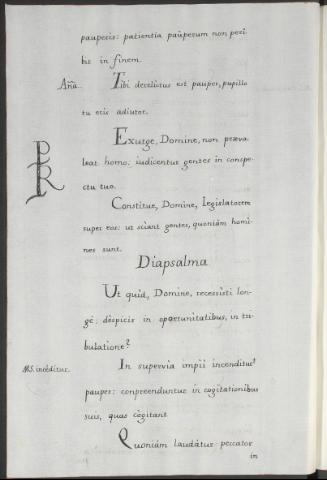 pauperis: patientia paùperum non peri
bit in finem.
Aña. Tibi derelictus est pauper, pupillo
tu eris adiutor.
Exurge, Domine, non præva
leat homo: iudicentur gentes in conspe
ctu tuo.
Constitue, Domine, legislatorem
super eos: ut sciant gentes, quoniám homi
nes sunt.
Diapsalma
Ut quid, Domine, recessisti lon
gè: dèspicis in oportunitatibus, in tri
bulatione?
M.S. inèditur. In supervia impii incenditur
pauper: conpreenduntur in cogitationibus
suis, quas cògitant
Quoniám laudàtur peccator
in